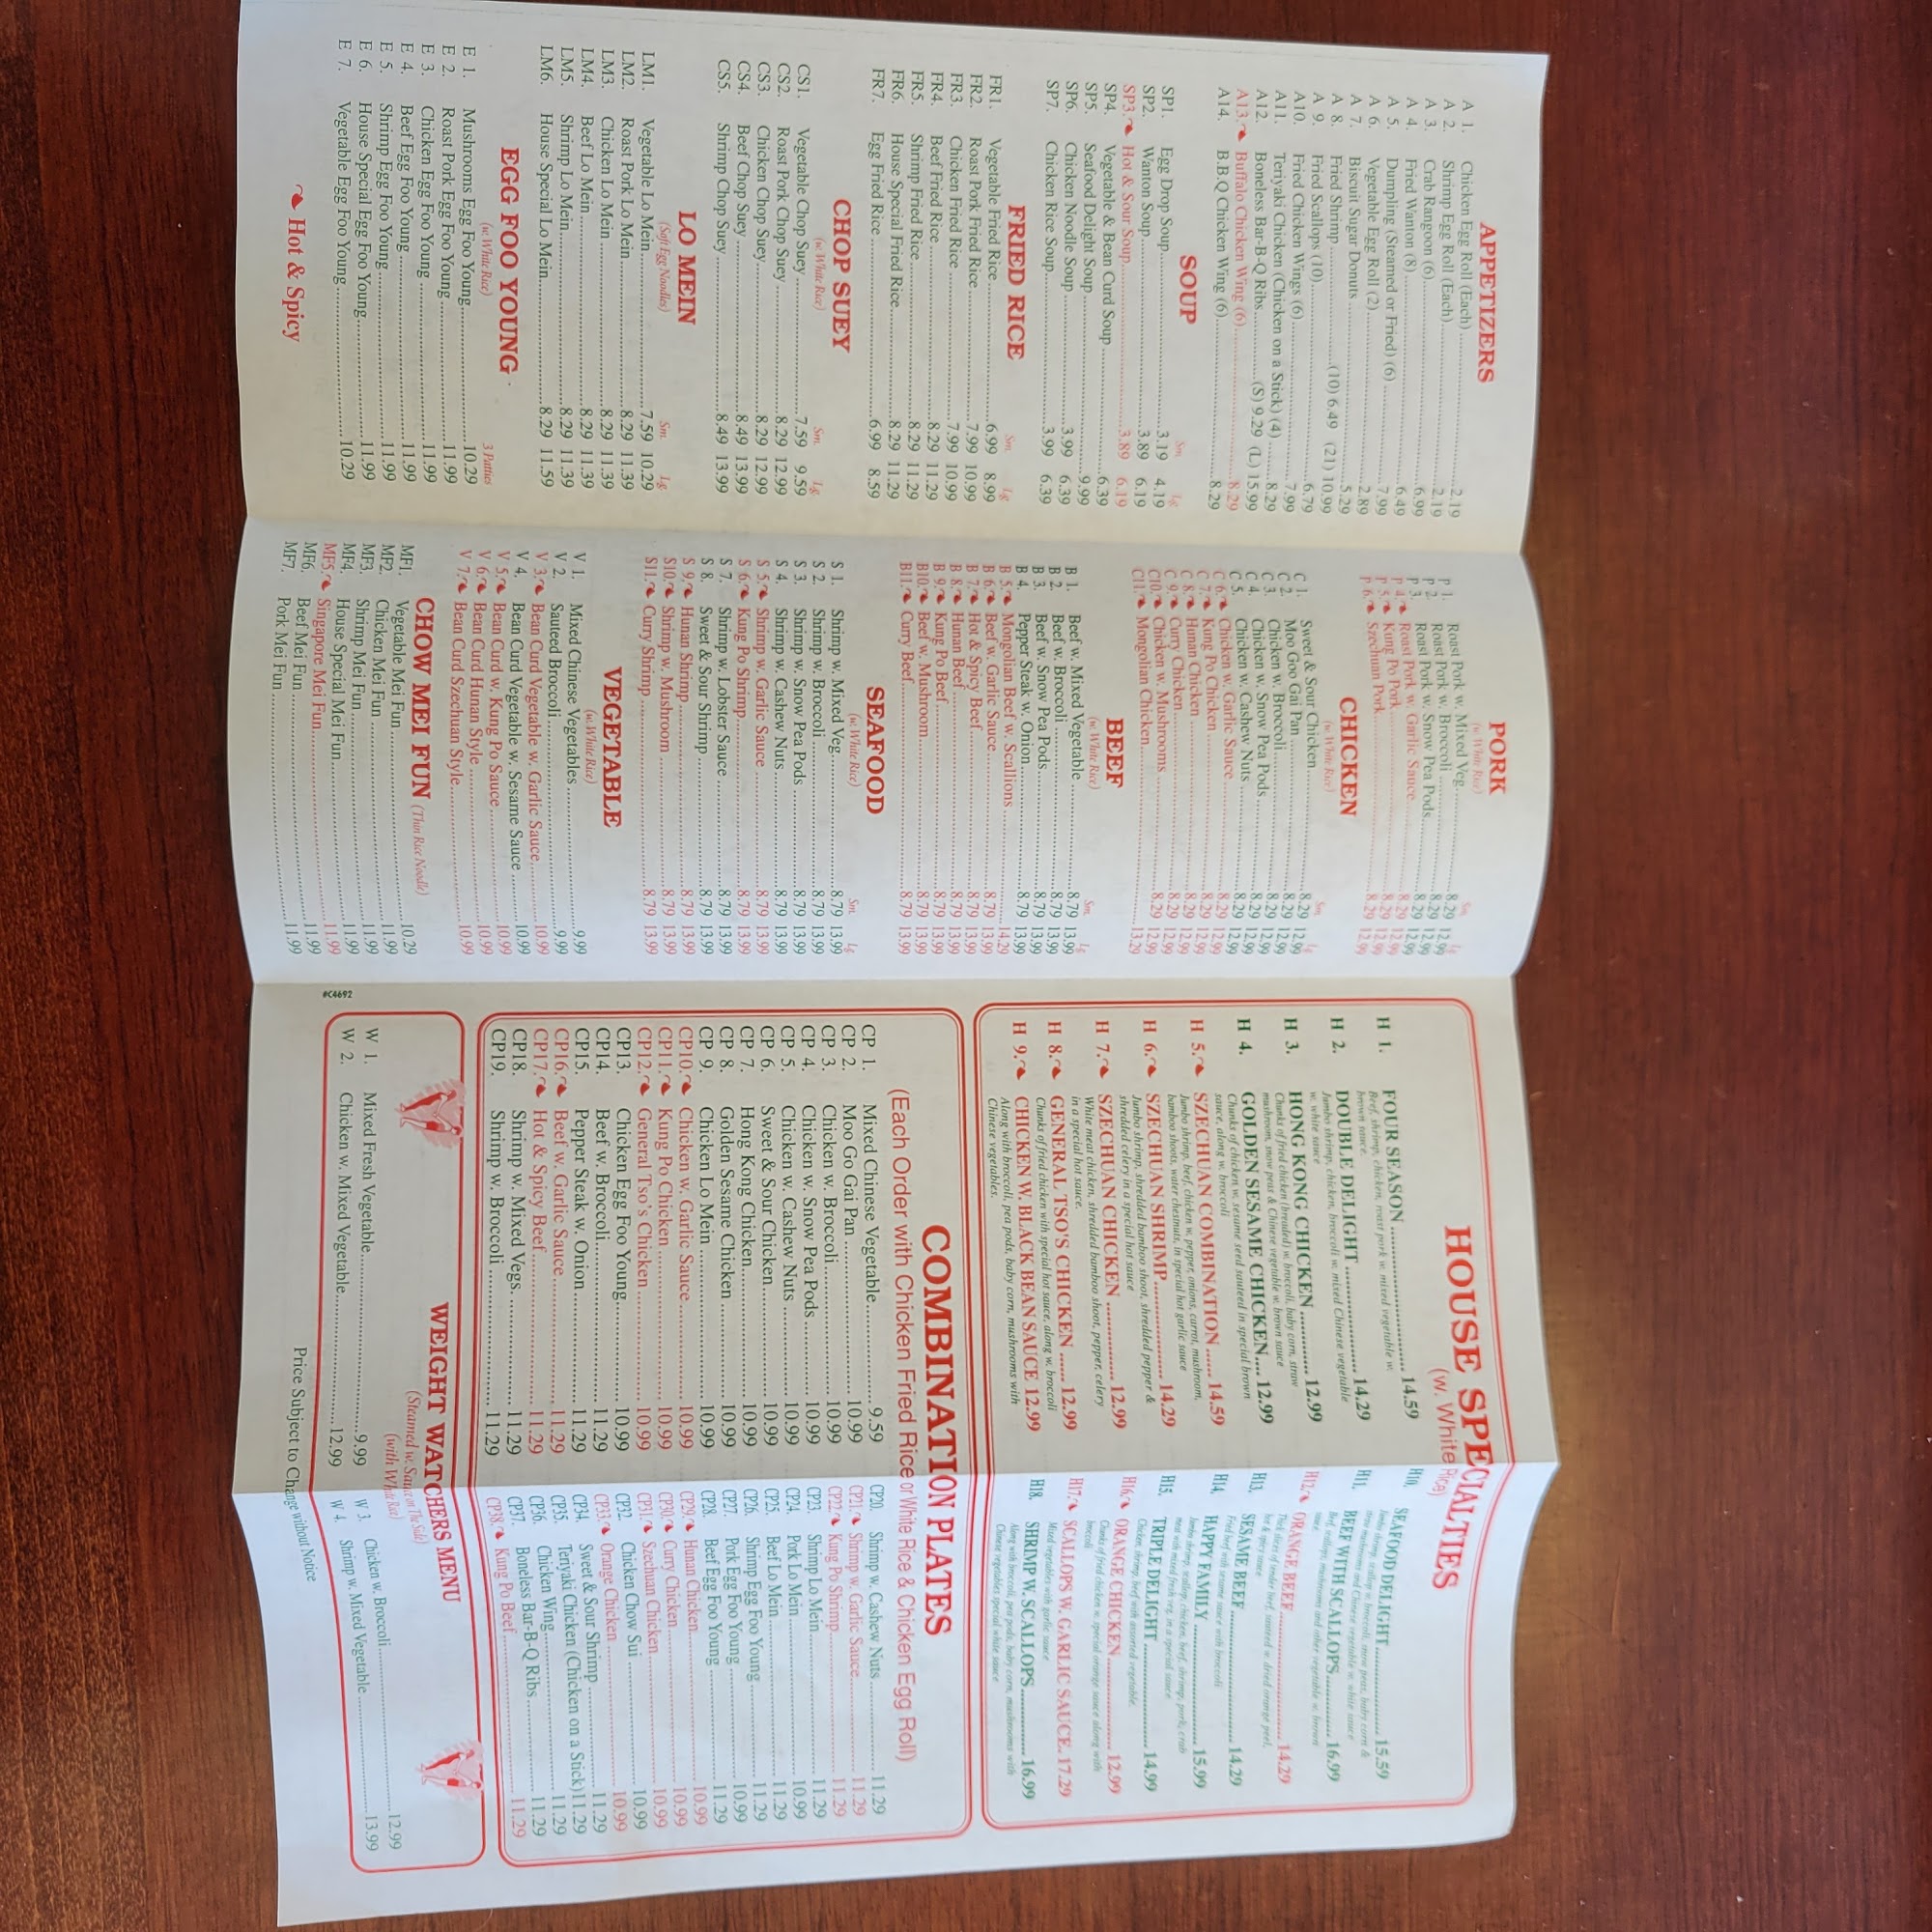 APPETIZERS
A 1. Chicken Egg Roll (Each) 2.19
A 2. Shrimp Egg Roll (Each) 2.19
A 3. Crab Rangoon (6) 6.99
A 4. Fried Wanton (8) 6.49
A 5. Dumpling (Steamed or Fried) (6) 7.99
A 6. Vegetable Egg Roll (2) 2.89
A 7. Biscuit Sugar Donuts 5.29
A 8. Fried Shrimp (10) 6.49 (21) 10.99
A 9. Fried Scallops (10) 6.79
A10. Fried Chicken Wings (6) 7.99
A11. Teriyaki Chicken (Chicken on a Stick) (4) 8.29
A12. Boneless Bar-B-Q Ribs (S) 9.29 (L) 15.99
A13. Buffalo Chicken Wing (6) 8.29
A14. B.B.Q Chicken Wing (6) 8.29
SOUP
Sm. Lg.
SP1. Egg Drop Soup 3.19 4.19
SP2. Wanton Soup 3.89 6.19
SP3. Hot & Sour Soup 3.89 6.19
SP4. Vegetable & Bean Curd Soup 6.39
SP5. Seafood Delight Soup 9.99
SP6. Chicken Noodle Soup 3.99 6.39
SP7. Chicken Rice Soup 3.99 6.39
FRIED RICE
Sm. Lg.
FR1. Vegetable Fried Rice 6.99 8.99
FR2. Roast Pork Fried Rice 7.99 10.99
FR3. Chicken Fried Rice 7.99 10.99
FR4. Beef Fried Rice 8.29 11.29
FR5. Shrimp Fried Rice 8.29 11.29
FR6. House Special Fried Rice 8.29 11.29
FR7. Egg Fried Rice 6.99 8.59
CHOP SUEY
(w. White Rice) Sm. Lg.
CS1. Vegetable Chop Suey 7.59 9.59
CS2. Roast Pork Chop Suey 8.29 12.99
CS3. Chicken Chop Suey 8.29 12.99
CS4. Beef Chop Suey 8.49 13.99
CS5. Shrimp Chop Suey 8.49 13.99
LO MEIN
(Soft Egg Noodles) Sm. Lg.
LM1. Vegetable Lo Mein 7.59 10.29
LM2. Roast Pork Lo Mein 8.29 11.39
LM3. Chicken Lo Mein 8.29 11.39
LM4. Beef Lo Mein 8.29 11.39
LM5. Shrimp Lo Mein 8.29 11.39
LM6. House Special Lo Mein 8.29 11.59
EGG FOO YOUNG
(w. White Rice) 3 Patties
E 1. Mushrooms Egg Foo Young 10.29
E 2. Roast Pork Egg Foo Young 11.99
E 3. Chicken Egg Foo Young 11.99
E 4. Beef Egg Foo Young 11.99
E 5. Shrimp Egg Foo Young 11.99
E 6. House Special Egg Foo Young 11.99
E 7. Vegetable Egg Foo Young 10.29
Hot & Spicy
PORK
(w. White Rice) Sm. Lg.
P 1. Roast Pork w. Mixed Veg. 8.29 12.99
P 2. Roast Pork w. Broccoli 8.29 12.99
P 3. Roast Pork w. Snow Pea Pods 8.29 12.99
P 4. Roast Pork w. Garlic Sauce 8.29 12.99
P 5. Kung Po Pork 8.29 12.99
P 6. Szechuan Pork 8.29 12.99
CHICKEN
(w. White Rice) Sm. Lg.
C 1. Sweet & Sour Chicken 8.29 12.99
C 2. Moo Goo Gai Pan 8.29 12.99
C 3. Chicken w. Broccoli 8.29 12.99
C 4. Chicken w. Snow Pea Pods 8.29 12.99
C 5. Chicken w. Cashew Nuts 8.29 12.99
C 6. Chicken w. Garlic Sauce 8.29 12.99
C 7. Kung Po Chicken 8.29 12.99
C 8. Hunan Chicken 8.29 12.99
C 9. Curry Chicken 8.29 12.99
C10. Chicken w. Mushrooms 8.29 12.99
C11. Mongolian Chicken 13.29
BEEF
(w. White Rice) Sm. Lg.
B 1. Beef w. Mixed Vegetable 8.79 13.99
B 2. Beef w. Broccoli 8.79 13.99
B 3. Beef w. Snow Pea Pods 8.79 13.99
B 4. Pepper Steak w. Onion 8.79 13.99
B 5. Mongolian Beef w. Scallions 14.29
B 6. Beef w. Garlic Sauce 8.79 13.99
B 7. Hot & Spicy Beef 8.79 13.99
B 8. Hunan Beef 8.79 13.99
B 9. Kung Po Beef 8.79 13.99
B10. Beef w. Mushroom 8.79 13.99
B11. Curry Beef 8.79 13.99
SEAFOOD
(w. White Rice) Sm. Lg.
S 1. Shrimp w. Mixed Veg 8.79 13.99
S 2. Shrimp w. Broccoli 8.79 13.99
S 3. Shrimp w. Snow Pea Pods 8.79 13.99
S 4. Shrimp w. Cashew Nuts 8.79 13.99
S 5. Shrimp w. Garlic Sauce 8.79 13.99
S 6. Kung Po Shrimp 8.79 13.99
S 7. Shrimp w. Lobster Sauce 8.79 13.99
S 8. Sweet & Sour Shrimp 8.79 13.99
S 9. Hunan Shrimp 8.79 13.99
S10. Shrimp w. Mushroom 8.79 13.99
S11. Curry Shrimp 8.79 13.99
VEGETABLE
(w. White Rice)
V 1. Mixed Chinese Vegetables 9.99
V 2. Sauteed Broccoli 9.99
V 3. Bean Curd Vegetable w. Garlic Sauce 10.99
V 4. Bean Curd Vegetable w. Sesame Sauce 10.99
V 5. Bean Curd w. Kung Po Sauce 10.99
V 6. Bean Curd Hunan Style 10.99
V 7. Bean Curd Szechuan Style 10.99
CHOW MEI FUN (Thin Rice Noodle)
MF1. Vegetable Mei Fun 10.29
MF2. Chicken Mei Fun 11.99
MF3. Shrimp Mei Fun 11.99
MF4. House Special Mei Fun 11.99
MF5. Singapore Mei Fun 11.99
MF6. Beef Mei Fun 11.99
MF7. Pork Mei Fun 11.99
HOUSE SPECIALTIES
(w. White Rice)
H 1. FOUR SEASON 14.59
Beef, shrimp, chicken, roast pork w. mixed vegetable w.
brown sauce.
H 2. DOUBLE DELIGHT 14.29
Jumbo shrimp, chicken, broccoli w. mixed Chinese vegetable
w. white sauce
H 3. HONG KONG CHICKEN 12.99
Chunks of fried chicken (breaded) w. broccoli, baby corn, straw
mushroom, snow peas & Chinese vegetable w. brown sauce
H 4. GOLDEN SESAME CHICKEN 12.99
Chunks of chicken w. sesame seed sauteed in special brown
sauce, along w. broccoli
H 5. SZECHUAN COMBINATION 14.59
Jumbo shrimp, beef, chicken w. pepper, onions, carrot, mushroom,
bamboo shoots, water chestnuts, in special hot garlic sauce
H 6. SZECHUAN SHRIMP 14.29
Jumbo shrimp, shredded bamboo shoot, shredded pepper &
shredded celery in a special hot sauce
H 7. SZECHUAN CHICKEN 12.99
White meat chicken, shredded bamboo shoot, pepper, celery
in a special hot sauce.
H 8. GENERAL TSO'S CHICKEN 12.99
Chunks of fried chicken with special hot sauce, along w. broccoli
H 9. CHICKEN W. BLACK BEAN SAUCE 12.99
Along with broccoli, pea pods, baby corn, mushrooms with
Chinese vegetables.
H10. SEAFOOD DELIGHT 15.59
Jumbo shrimp, scallop w. broccoli, snow peas, baby corn &
straw mushrooms and Chinese vegetable w. white sauce
H11. BEEF WITH SCALLOPS 16.99
Beef, scallops, mushrooms and other vegetable w. brown
sauce
H12. ORANGE BEEF 14.29
Thick slices of tender beef, sauteed w. dried orange peel,
hot & spicy sauce
H13. SESAME BEEF 14.29
Fried beef with sesame sauce with broccoli
H14. HAPPY FAMILY 15.99
Jumbo shrimp, scallops, chicken, beef, shrimp, pork, crab
meat with mixed fresh veg. in a special sauce
H15. TRIPLE DELIGHT 14.99
Chicken, shrimp, beef with assorted vegetable.
H16. ORANGE CHICKEN 12.99
Chunks of fried chicken w. special orange sauce along with
broccoli
H17. SCALLOPS W. GARLIC SAUCE 17.29
Mixed vegetables with garlic sauce
H18. SHRIMP W. SCALLOPS 16.99
Along with broccoli, pea pods, baby corn, mushrooms with
Chinese vegetables special white sauce
COMBINATION PLATES
(Each Order with Chicken Fried Rice or White Rice & Chicken Egg Roll)
CP 1. Mixed Chinese Vegetable 9.59
CP 2. Moo Go Gai Pan 10.99
CP 3. Chicken w. Broccoli 10.99
CP 4. Chicken w. Snow Pea Pods 10.99
CP 5. Chicken w. Cashew Nuts 10.99
CP 6. Sweet & Sour Chicken 10.99
CP 7. Hong Kong Chicken 10.99
CP 8. Golden Sesame Chicken 10.99
CP 9. Chicken Lo Mein 10.99
CP10. Chicken w. Garlic Sauce 10.99
CP11. Kung Po Chicken 10.99
CP12. General Tso's Chicken 10.99
CP13. Chicken Egg Foo Young 10.99
CP14. Beef w. Broccoli 11.29
CP15. Pepper Steak w. Onion 11.29
CP16. Beef w. Garlic Sauce 11.29
CP17. Hot & Spicy Beef 11.29
CP18. Shrimp w. Mixed Vegs. 11.29
CP19. Shrimp w. Broccoli 11.29
CP20. Shrimp w. Cashew Nuts 11.29
CP21. Shrimp w. Garlic Sauce 11.29
CP22. Kung Po Shrimp 11.29
CP23. Shrimp Lo Mein 11.29
CP24. Pork Lo Mein 10.99
CP25. Beef Lo Mein 11.29
CP26. Shrimp Egg Foo Young 11.29
CP27. Pork Egg Foo Young 10.99
CP28. Beef Egg Foo Young 11.29
CP29. Hunan Chicken 10.99
CP30. Curry Chicken 10.99
CP31. Szechuan Chicken 10.99
CP32. Chicken Chow Sui 10.99
CP33. Orange Chicken 10.99
CP34. Sweet & Sour Shrimp 11.29
CP35. Teriyaki Chicken (Chicken on a Stick) 11.29
CP36. Chicken Wing 11.29
CP37. Boneless Bar-B-Q Ribs 11.29
CP38. Kung Po Beef 11.29
WEIGHT WATCHERS MENU
(Steamed w. Sauce on The Side)
(with White Rice)
W 1. Mixed Fresh Vegetable 9.99
W 2. Chicken w. Mixed Vegetable 12.99
W 3. Chicken w. Broccoli 12.99
W 4. Shrimp w. Mixed Vegetable 13.99
#C4692
Price Subject to Change without Notice